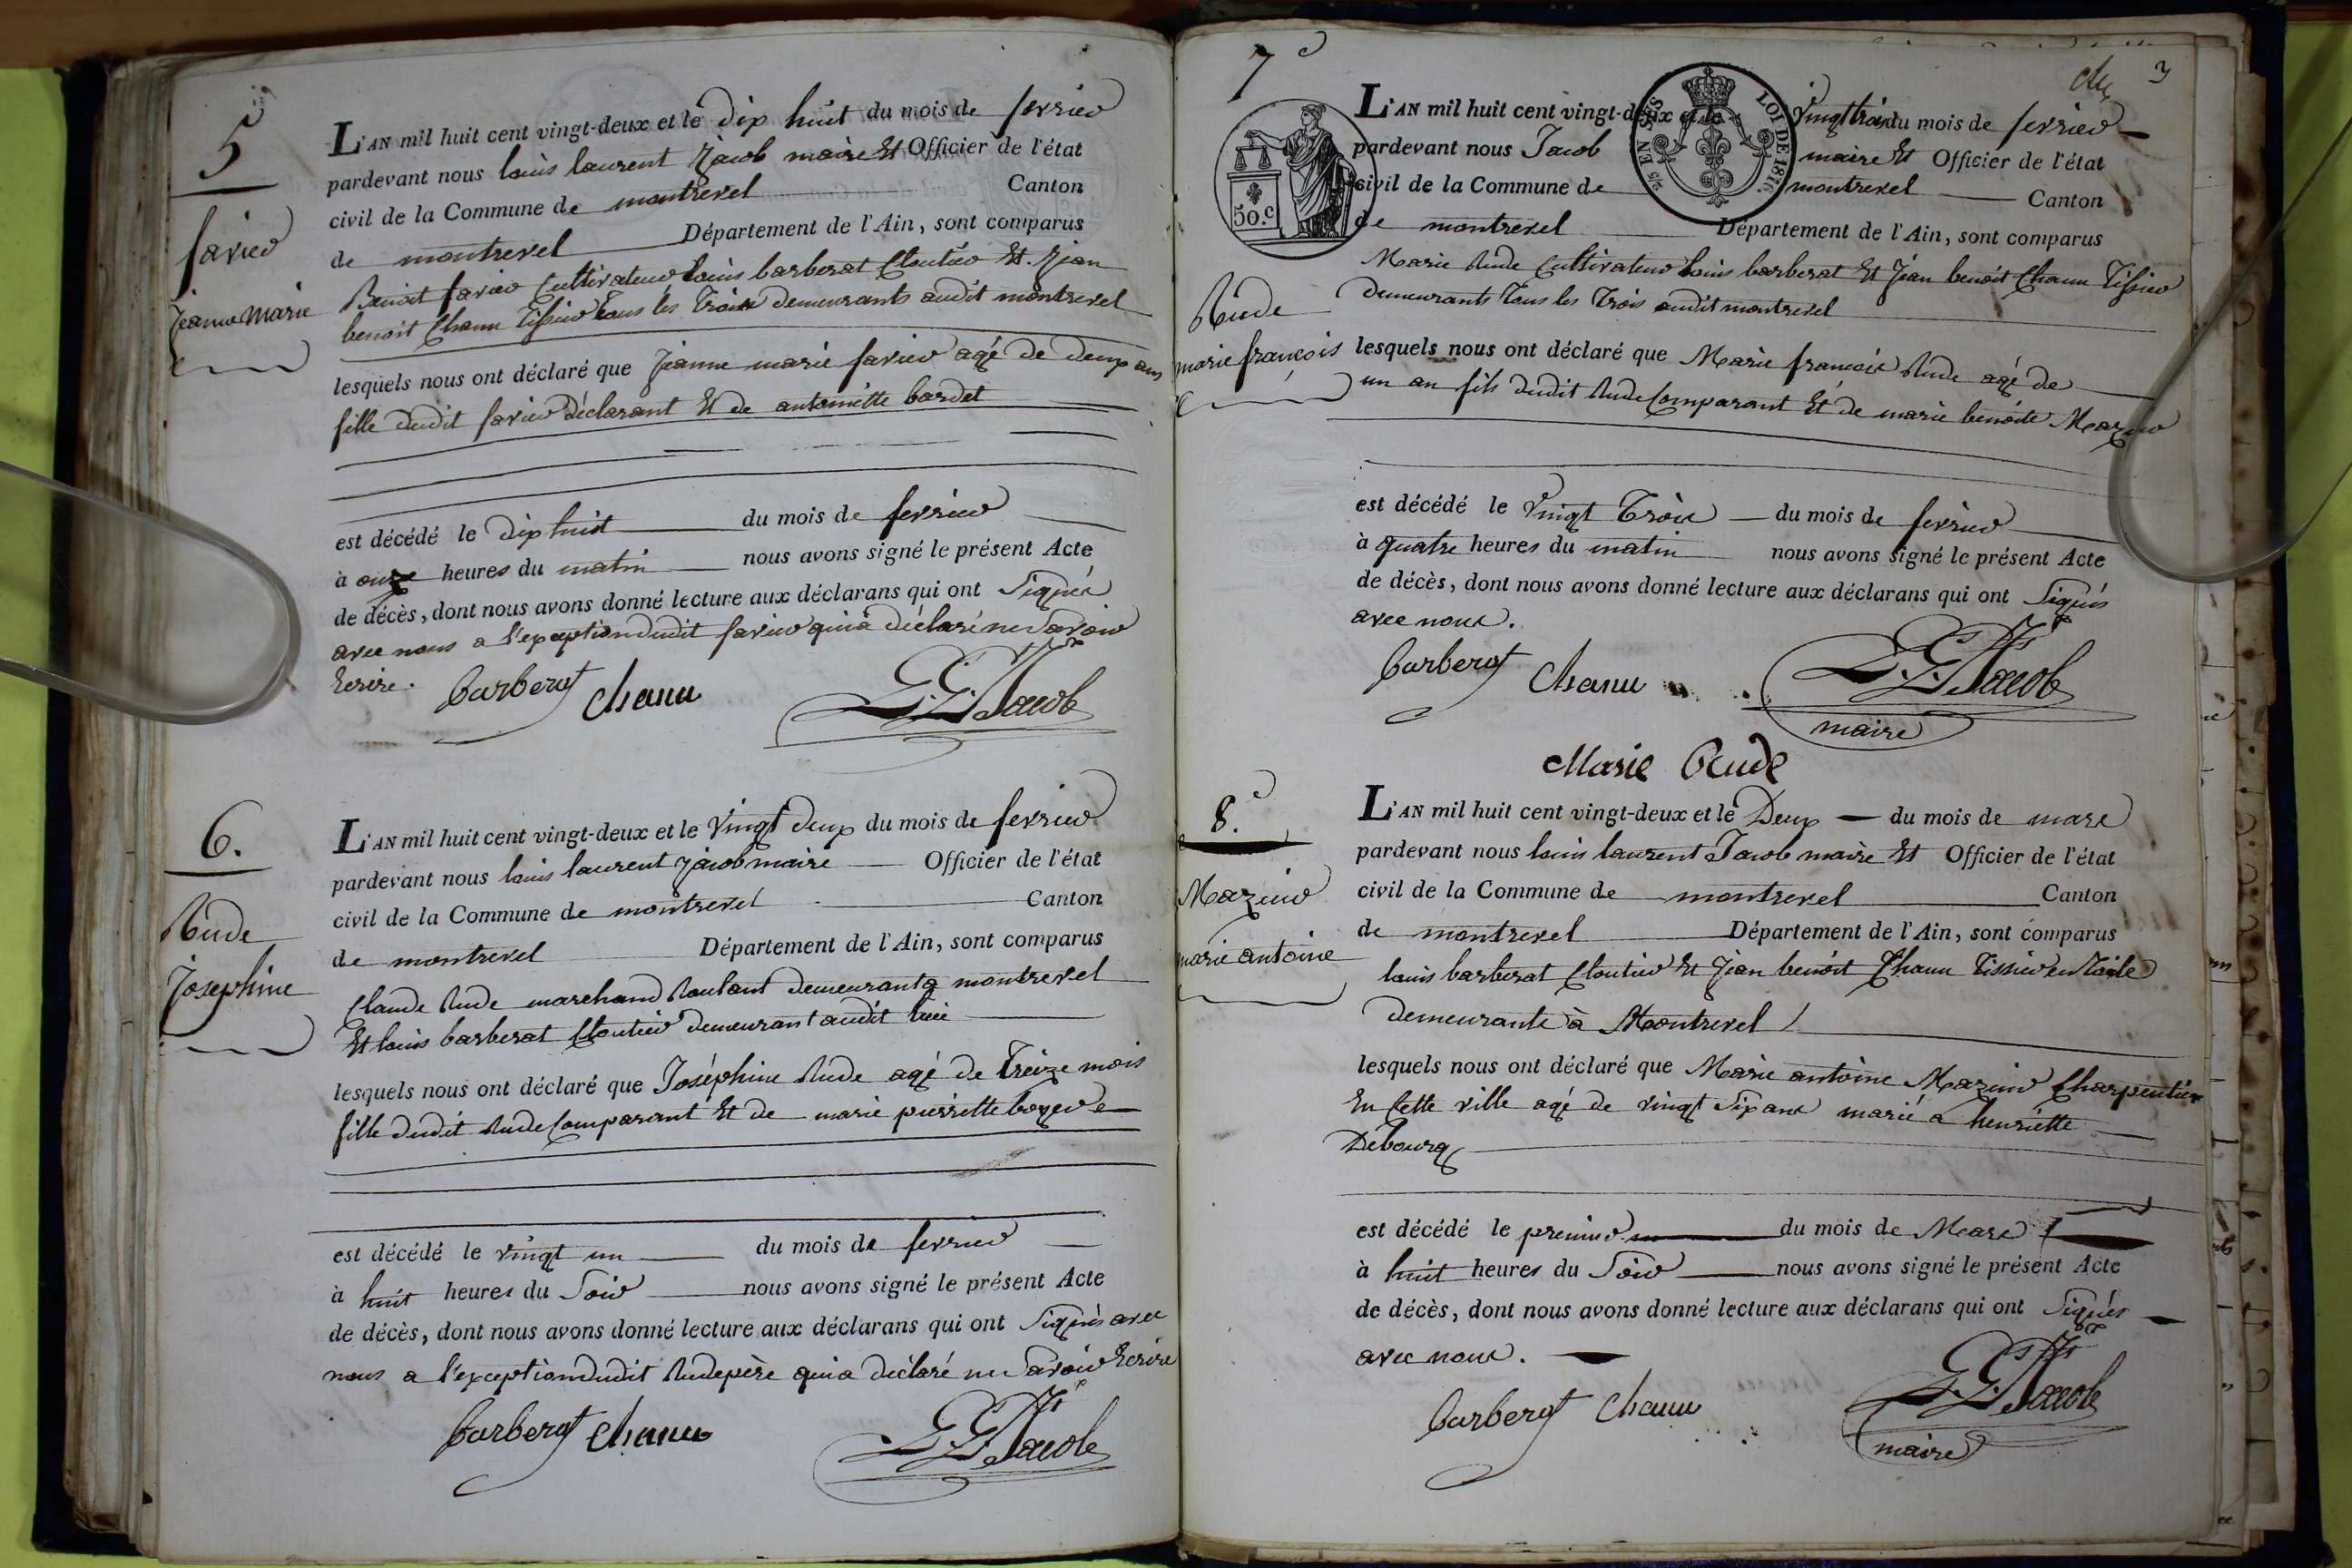 5
favier
jeanne Marie
L'AN mil huit cent vingt-deux et le dix huit du mois de fevrier
pardevant nous louis laurent Jacob maire Et Officier de l'état
civil de la Commune de montrevel Canton
de montrevel Département de l'Ain, sont comparus
Benoit favier Cultivateur louis barberat Cloutier Et Jean
benoit Chanu Tissier tous les trois demeurants audit montrevel
lesquels nous ont déclaré que Jeanne marie favier agé de deux ans
fille dudit favier déclarant Et de antoinette bardet
est décédé le dix huit du mois de fevrier
à onze heures du matin nous avons signé le présent Acte
de décès, dont nous avons donné lecture aux déclarans qui ont Signés
avec nous a l'exception dudit favier qui a déclaré ne Savoir
Ecrire.
barberat Chanu L. L. Jacob
6.
Rude
Josephine
L'AN mil huit cent vingt-deux et le Vingt deux du mois de fevrier
pardevant nous louis laurent Jacob maire Officier de l'état
civil de la Commune de montrevel Canton
de montrevel Département de l'Ain, sont comparus
Claude Rude marchand Roulant demeurant a montrevel
Et louis barberat Cloutier demeurant audit lieu
lesquels nous ont déclaré que Joséphine Rude agé de treize mois
fille dudit Rude Comparant Et de marie pierrette
est décédé le vingt un du mois de fevrier
à huit heures du Soir nous avons signé le présent Acte
de décès, dont nous avons donné lecture aux déclarans qui ont Signés avec
nous a l'exception dudit Rude père qui a déclaré ne Savoir Ecrire
barberat Chanu L. L. Jacob
7e
3
50.c
EN SUS
LOI DE 1816.
Rude
marie françois
L'AN mil huit cent vingt-deux et le vingt trois du mois de fevrier
pardevant nous Jacob maire Et Officier de l'état
civil de la Commune de montrevel Canton
de montrevel Département de l'Ain, sont comparus
Marie Rude Cultivateur louis barberat Et Jean benoit Chanu Tissier
demeurants tous les trois audit montrevel
lesquels nous ont déclaré que Marie francois Rude agé de
un an fils dudit Rude Comparant Et de marie benoite Mazuir
est décédé le Vingt trois du mois de fevrier
à quatre heures du matin nous avons signé le présent Acte
de décès, dont nous avons donné lecture aux déclarans qui ont Signés
avec nous.
barberat Chanu L. L. Jacob
maire
Marie Rude
8.e
Mazuir
marie antoine
L'AN mil huit cent vingt-deux et le Deux du mois de mars
pardevant nous louis laurent Jacob maire Et Officier de l'état
civil de la Commune de montrevel Canton
de montrevel Département de l'Ain, sont comparus
louis barberat Cloutier Et Jean benoit Chanu Tissier en Toile
demeurants à Montrevel
lesquels nous ont déclaré que Marie antoine Mazuir Charpentier
En Cette ville agé de vingt Six ans marié a henriette
Debourg
est décédé le premier du mois de Mars
à huit heures du Soir nous avons signé le présent Acte
de décès, dont nous avons donné lecture aux déclarans qui ont Signés
avec nous.
barberat Chanu L. L. Jacob
maire